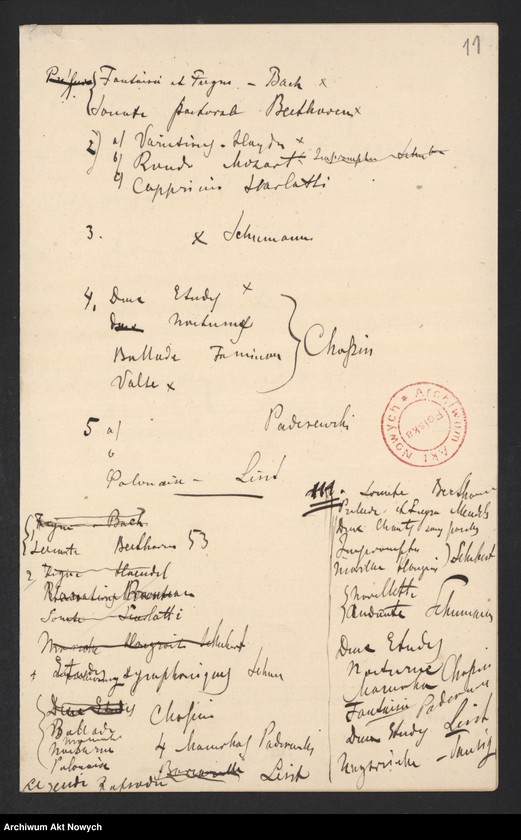 11
Fantaisie et Fugue - Bach x
Sonate pastorale Beethoven x
2) a) Variations - Haydn x
b) Rondo Mozart Impromptu Schubert
c) Capriccio Scarlatti
3. x Schumann
4. Deux Etudes x
Deux Nocturnes
Ballade F mineur
Valse x
Chopin
5 a) Paderewski
b
Polonaise - Liszt
Archiwum Akt Nowych
Polska
Fugue - Bach
Sonate Beethoven 53
2 Fugue Haendel
Sonate Scarlatti
Schubert
4 Etudes symphoniques Schum
Deux Etudes
Ballade Chopin
Nocturne
4 Mazurkas Paderewski
Polonaise
Barcarolle Liszt
Legende Rapsodie
III. Sonate Beethoven
Prelude et Fugue Mendels
Deux Chants sans paroles
Impromptu
Marche Hongroise
Schubert
Novellette
Andante Schumann
Deux Etudes
Nocturne
Mazurka Chopin
Fantaisie Paderewski
Deux Etudes Liszt
Ungarische - Tausig
Archiwum Akt Nowych